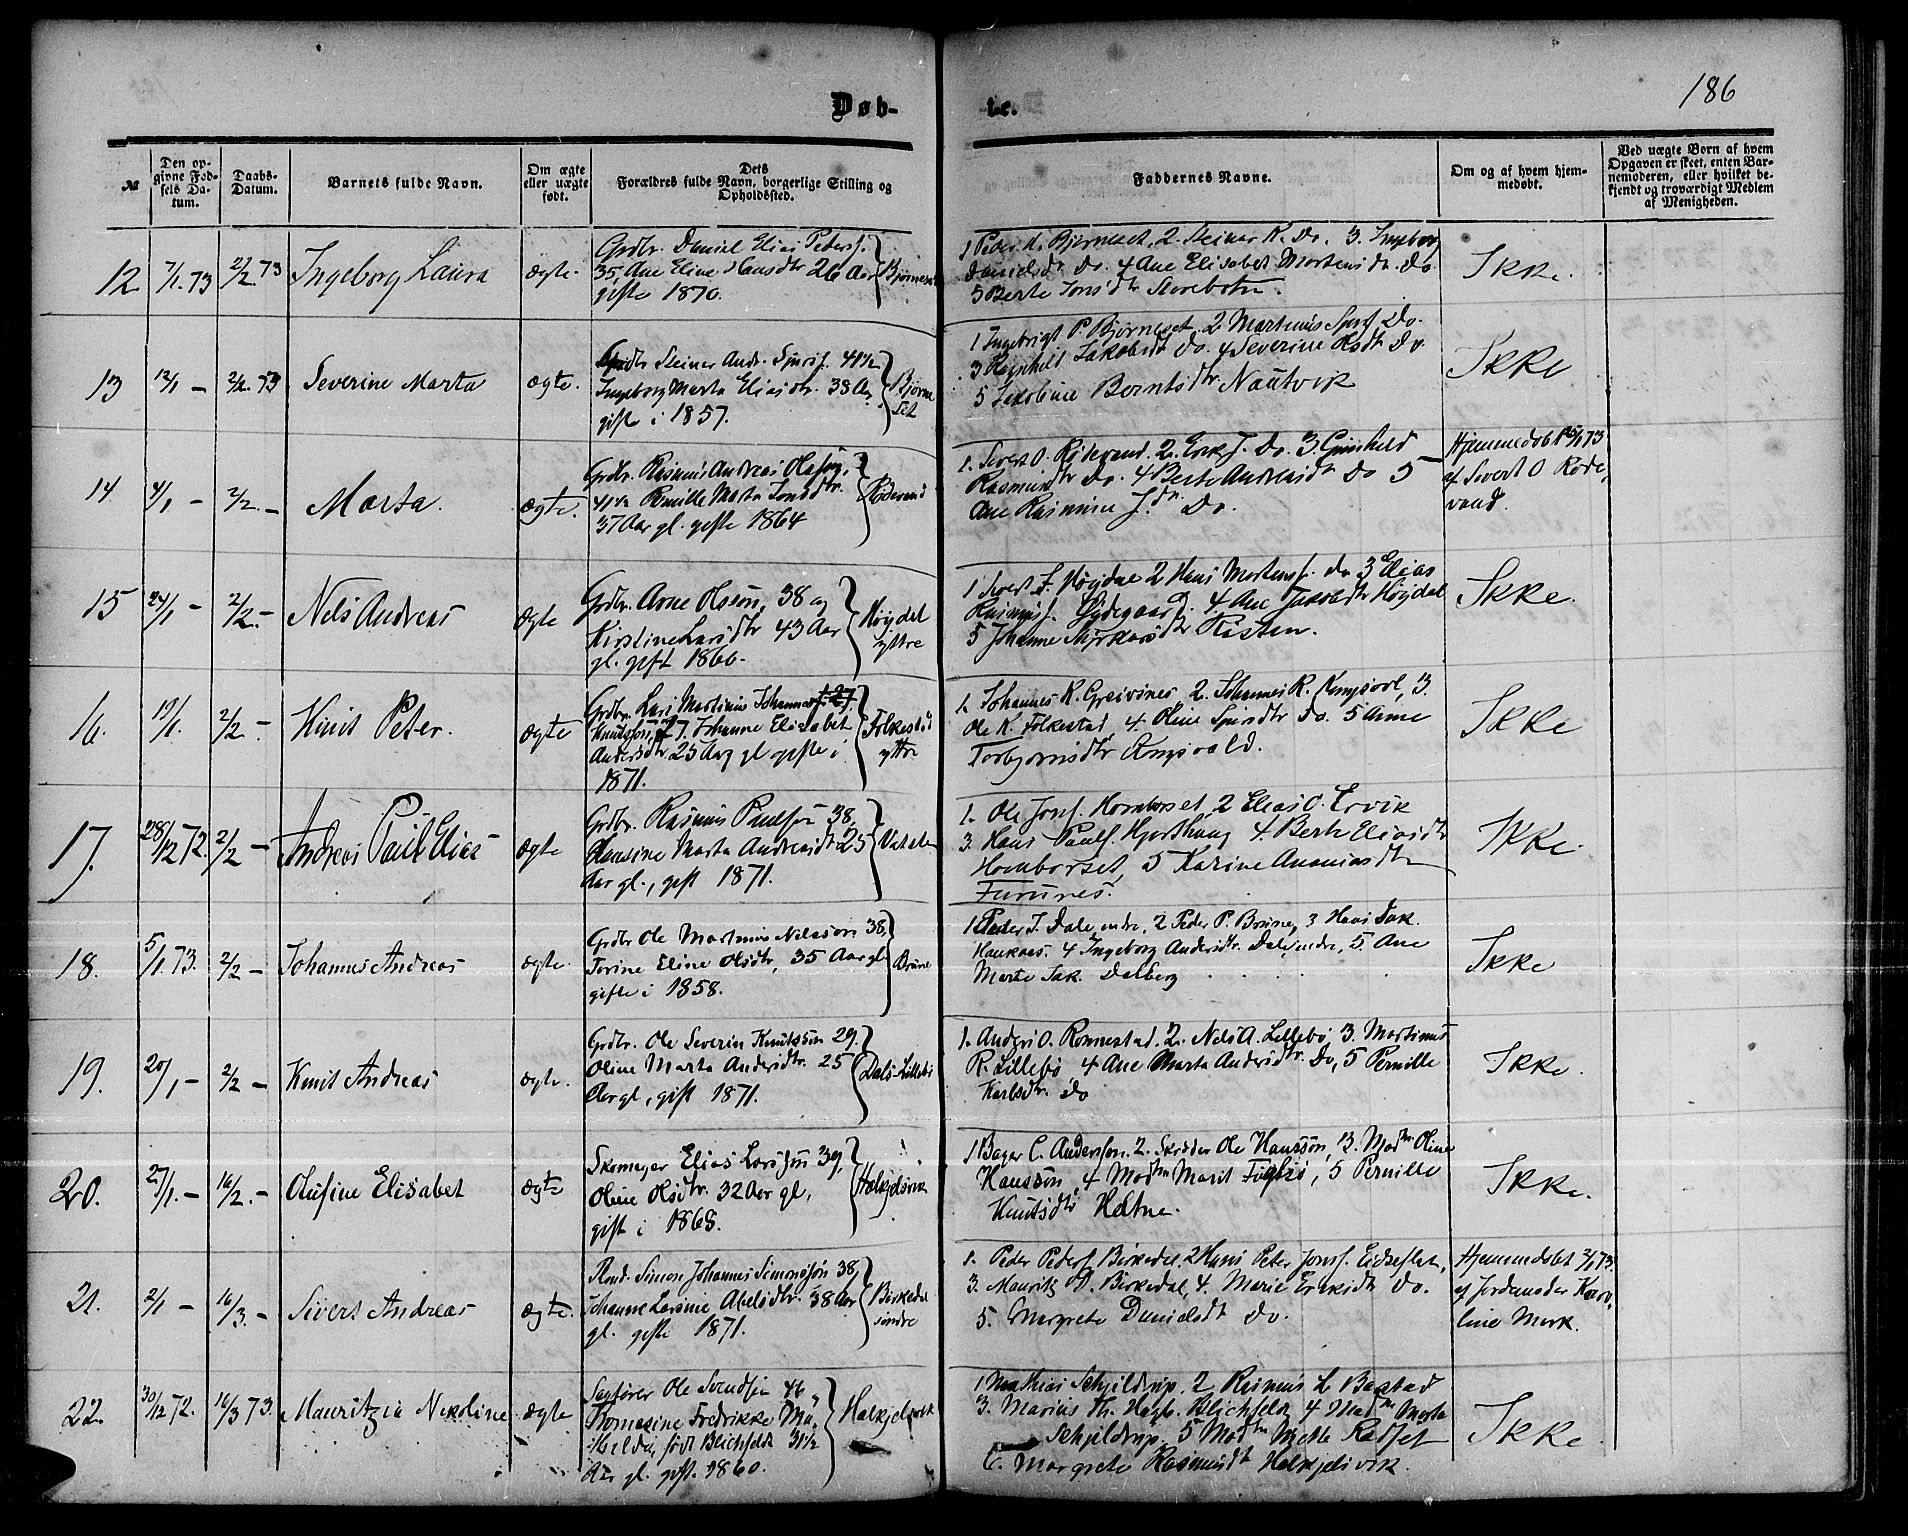 186
Døb-
te.
№
Den op-
givne Fød-
sels Da-
tum.
Daabs-
Datum.
Barnets fulde Navn.
Om ægte
eller uægte
født.
Dets
Forældres fulde Navn, borgerlige Stilling og
Opholdssted.
Faddernes Navne.
Om og af hvem hjem-
medøbt.
Ved uægte Børn af hvem
Opgaven er skeet, enten Bar-
nemoderen, eller hvilket be-
kjendt og troværdigt Medlem
af Menigheden.
12 7/1.73 2/2.73 Ingeborg Laura ægte
Grdbr. Daniel Elias Peders.
35, Ane Eline Hansdtr 26 Aar
gifte 1870.
2. Steinar K. Do. 3. Ingeborg
Danielsdtr Do. 4 Ane Elisabet Mortensdtr. Do.
5 Berte Jonsdtr Storebotn.
Ikke.
13 12/1 - 2/2.73 Severine Marta ægte.
Ingeborg Marta Eliasdtr. 38 Aar
gift i 1857.
Bjørne
set
1 Ingebrigt P. Bjørneset. 2 Martinus Do.
Do. 4 Severine Do
5 Jakobine Berntsdtr Nautvik
Ikke
14 4/1 - 2/2. - Marta. ægte.
Grdbr. Rasmus Andreas Olsson,
41 1/2 Pernille Marta Jonsdtr.
37 Aar gl. gifte 1864
Rødevand
1. Sivert O. Rødevand. 2. Erik J. Do. 3. Gunhild
Rasmusdtr Do. 4 Berte Andreasdtr Do 5
Ane Rasmine J.dtr Do.
Hjemmedøbt 73
af Sivert O Røde-
vand.
15 24/1 - 2/2. - Nels Andreas ægte
Grdbr. Arne Olsson, 38 og
Kirstine Larsdtr 43 Aar
gl. gift 1866.
Høydal
yttre
1 Sivert Høydal 2 Hans Mortens. do 3 Elias
Rasmus. Ødegaard. 4. Ane Jakobsdtr Høydal
5 Johanne Rasten.
Ikke.
16. 19/1. 2/2 - Knut Peter. ægte
Grdbr. Lars Martinus
Knutssøn 27. Johanne Elisabet
Andersdtr 25 Aar gl gifte i
1871.
Folkestad
yttre
1. Johannes K. Greivsnes 2. Johannes R. Kongsvol, 3.
Ole K. Folkestad 4. Oline Do. 5 Anne
Torbjørnsdtr Kongsvold.
Ikke
17. 28/12 72. 2/2 - Andreas Paul Elias ægte
Grdbr. Rasmus Paulsøn 38,
Hansine Marta Andreasdtr 25
Aar gl., gift 1871.
1. Ole Jons. Hornborset, 2 Elias O. Ervik
3. Hans Pauls. Hjorthaug 4. Berte Eliasdtr
Hornborset, 5 Karine Ananiasdtr
Furunes.
Ikke.
18. 5/1 73. 2/2 - Johannes Andreas ægte.
Grdbr Ole Martinus Nelssøn 38,
Torine Eline Olsdtr, 35 Aar gl
gifte i 1858.
Brune
1 Peder J. Dale, indre, 2 Peder P. Brune, 3 Hans Jak.
Haukaas. 4 Ingeborg Andersdtr. Dale, indre, 5. Ane
Marte Jak. Dalberg
Ikke
19. 20/1 - 2/2 - Knut Andreas ægte.
Grdbr. Ole Severin Knutssøn 29.
Oline Marta Andersdtr. 25
Aar gl., gift 1871.
Dals-Lillebø
1. Anders O. Rommestad. 2. Nels A. Lillebø, 3. Martinus
R. Lillebø 4 Ane Marta Andersdtr. Do, 5 Pernille
Karlsdtr. do
Ikke.
20. 27/1. - 16/2. - Olufine Elisabet ægte
Skomager Elias Larssøn 39,
Oline Olsdtr. 32 Aar gl,
gift i 1868.
Halkjelsvik
1 Bager C. Anderssøn. 2. Skræder Ole Hanssøn, 3. Mad. Oline
Hanssøn, 4 Mad. Marit 5 Pernille
Knutsdtr Heltne.
Ikke.
21. 2/1 - 16/3. - Sivert Andreas ægte.
Simon Johannes Simonssøn 38,
Johanne Larsine Abelsdtr. 38 Aar
gl. gifte 1871.
Birkedal
søndre
1. Peder Peders. Birkedal. 2 Hans Peter Jons. Eidseflot,
3. Mauritz D. Birkedal, 4. Marie Eriksdtr Do.
5. Margrete Danielsdtr Do.
Hjemmedøbt 2/1 73.
af Jordemoder Karo-
line Mork.
22. 30/12 72. 16/3 73. Mauritzia Nikoline ægte
Sagfører Ole Svendsen 46,
Thomasine Fredrikke
født Blichfeldt 31 1/2
Aar gl. gift. 1860.
Halkjelsvik
1 Mathias Schjeldrup. 2 Rasmus L. Bastad
3. Marius Th. Blichfeldt, 4 Mad. Marta
Schjeldrup. 5 Mad. Mette Rafset
6. Margrete Rasmusdtr Halkjelsvik.
Ikke.